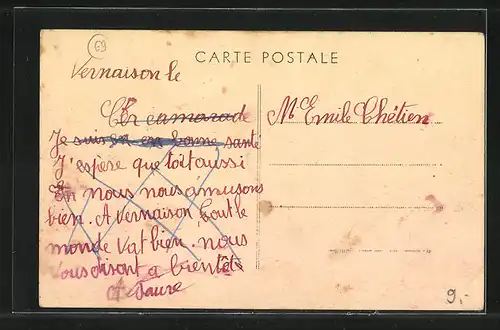 69
CARTE POSTALE
Vernaison le
Cher camarade
Je suis en bonne santé
J'espère que toit aussi
En nous nous amusons
bien. A Vernaison tout le
monde vat bien. nous
vous disont a bientôt
9.-
Mce Emile Chétien